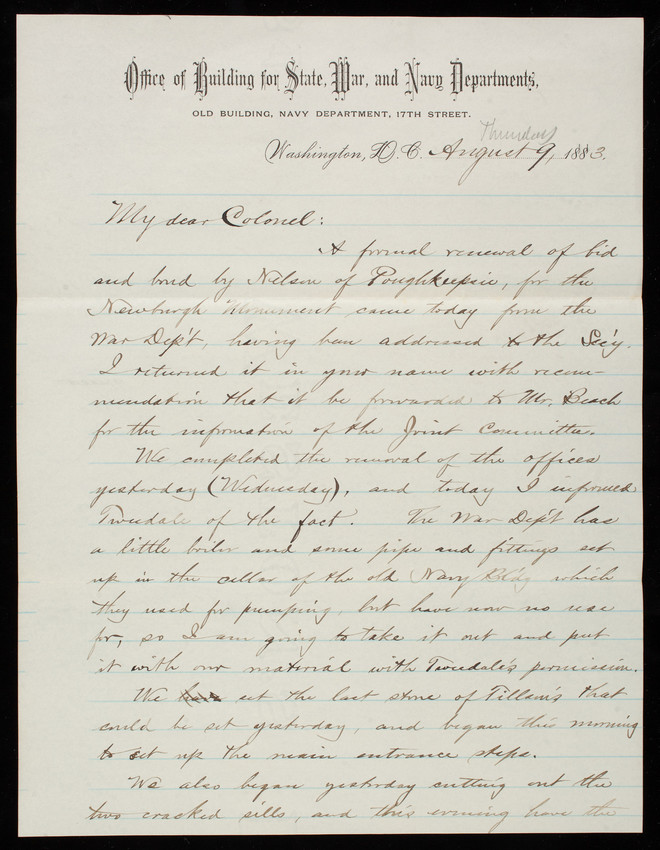 Office of Building for State, War, and Navy Departments,
OLD BUILDING, NAVY DEPARTMENT, 17TH STREET.
Thursday
Washington, D. C. August 9, 1883.
My dear Colonel:
A formal renewal of bid
and bond by Nelson of Poughkeepsie, for the
Newburgh Monument came today from the
War Dep't, having been addressed to the Sec'y.
I returned it in your name with recom-
mendation that it be forwarded to Mr. Beach
for the information of the Joint Committee.
We completed the removal of the offices
yesterday (Wednesday), and today I informed
Tweedale of the fact. The War Dep't has
a little boiler and some pipe and fittings set
up in the cellar of the old Navy Bld'g which
they used for pumping, but have now no use
for, so I am going to take it out and put
it with our material with Tweedale's permission.
We have set the last stone of Tillson's that
could be set yesterday, and began this morning
to set up the main entrance steps.
We also began yesterday cutting out the
two cracked sills, and this evening have the